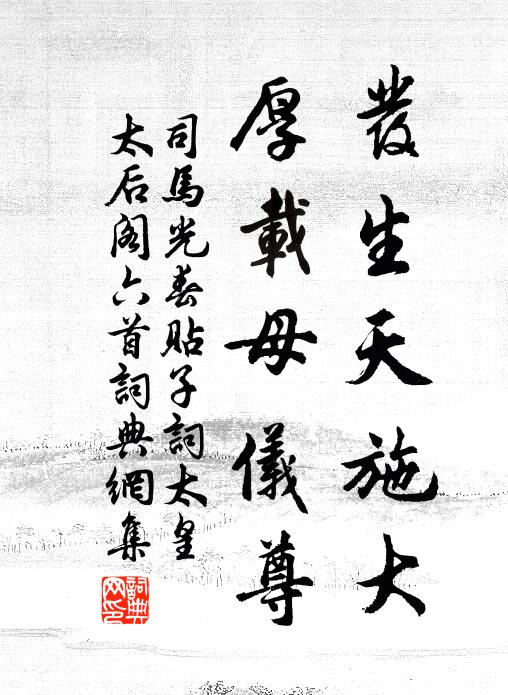 發生天施大
厚載母儀尊
司馬光春貼子詞太皇
太后閣六首詞典網集
詞典
网印